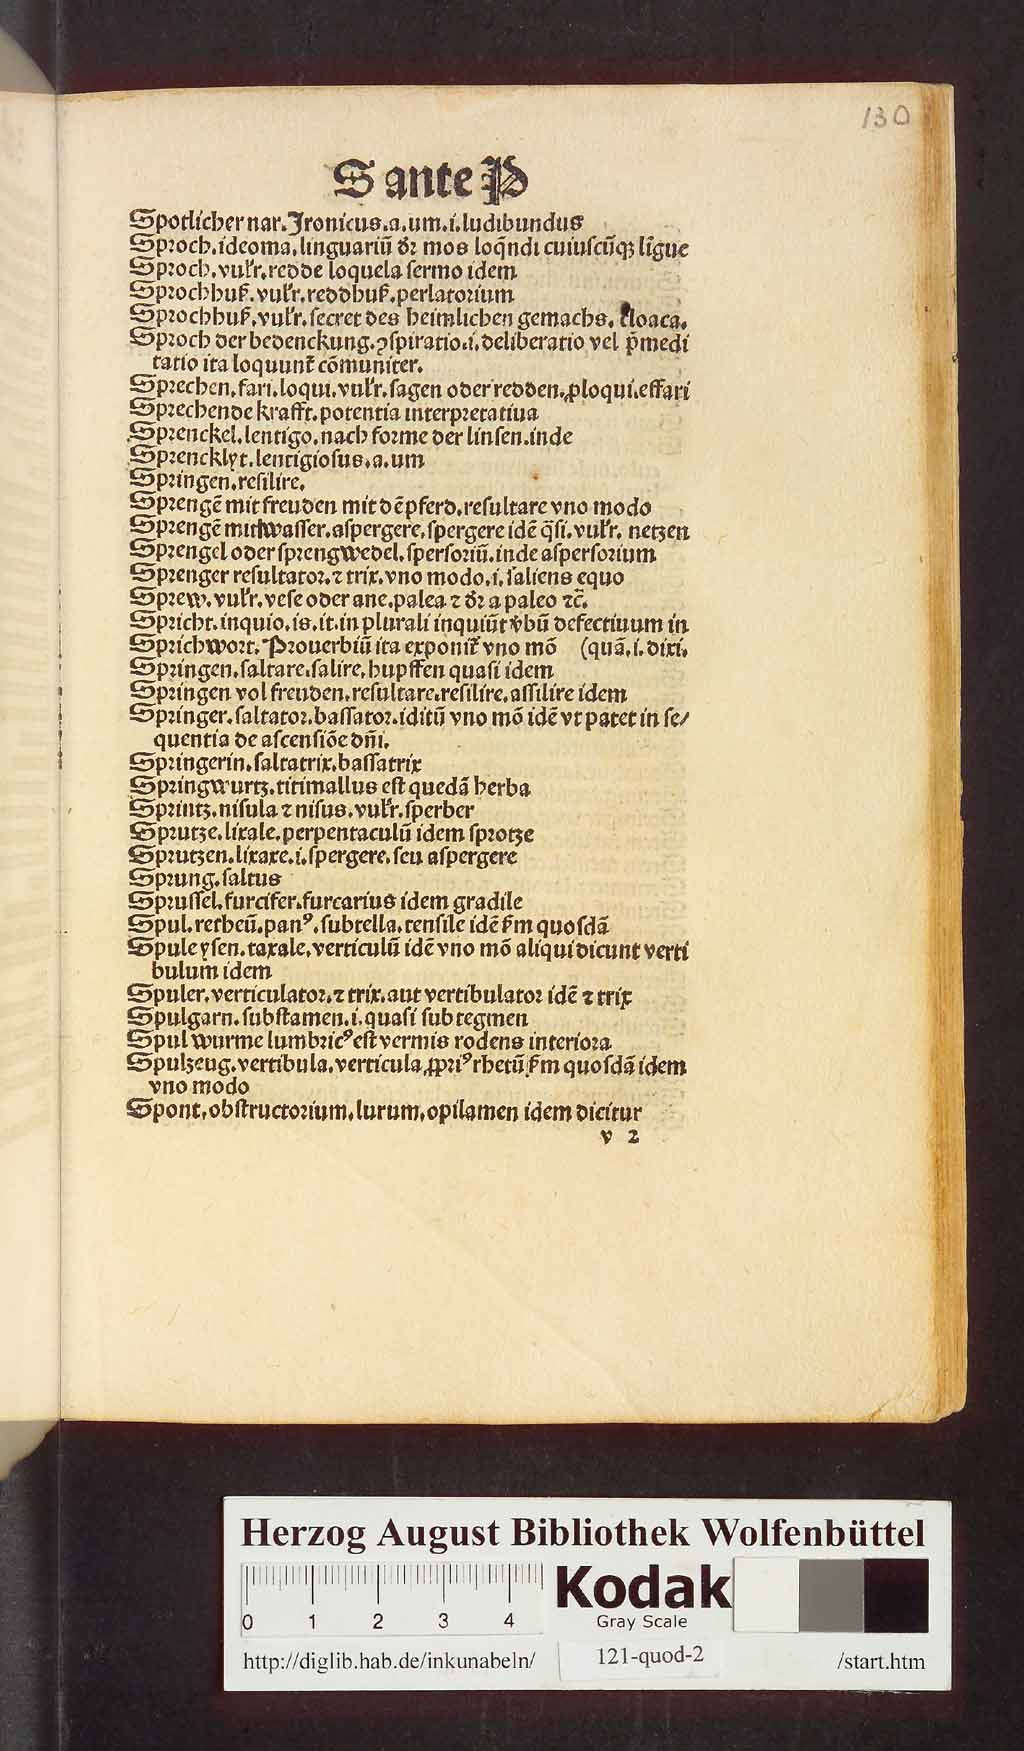 130
S ante P
Spotlicher nar. Jronicus.a.um.i.ludibundus
Sproch.ideoma.linguariū dr mos loqndi cuiuscūqz ligue
Sproch.vulr.redde loquela sermo idem
Sprochhuß.vulr.reddhuß.perlatorium
Sprochhuß.vulr.secret des heimlichen gemachs. cloaca.
Sproch der bedenckung.ꝯspiratio.i.deliberatio vel p̄medi
tatio ita loquunt̄ cōmuniter.
Sprechen.fari.loqui.vulr.sagen oder redden.ꝓloqui.effari
Sprechende krafft.potentia interpretatiua
Sprenckel.lentigo.nach forme der linsen.inde
Sprencklyt.lentigiosus.a.um
Springen.resilire.
Sprengē mit freuden mit dē pferd.resultare vno modo
Sprengē mit wasser.aspergere.spergere idē q̄si.vulr. netzen
Sprengel oder sprengwedel.spersoriū.inde aspersorium
Sprenger resultator.⁊ trix.vno modo.i.saliens equo
Sprew.vulr.vese oder ane.palea ⁊ dr a paleo ⁊c̄.
Spricht.inquio.is.it.in plurali inquiūt v̄bū defectiuum in
Sprichwort.Prouerbiū ita exponit̄ vno mō (quā.i.dixi.
Springen.saltare.salire.hupffen quasi idem
Springen vol freuden.resultare.resilire.assilire idem
Springer.saltator.bassator.iditū vno mō idē vt patet in se/
quentia de ascensiōe dn̄i.
Springerin.saltatrix.bassatrix
Springwurtz.titimallus est quedā herba
Sprintz.nisula ⁊ nisus.vulr.sperber
Sprutze.lixale.perpentaculū idem sprotze
Sprutzen.lixaxe.i.spergere.seu aspergere
Sprung.saltus
Sprussel.furcifer.furcarius idem gradile
Spul.retheū.panꝰ.subtella.tensile idē s̄m quosdā
Spule ysen.taxale.verticulū idē vno mō aliqui dicunt verti
bulum idem
Spuler.verticulator.⁊ trix.aut vertibulator idē ⁊ trix
Spulgarn.substamen.i.quasi sub tegmen
Spul wurme lumbricꝰ est vermis rodens interiora
Spulzeug.vertibula.verticula.ꝓpriꝰ rhetū s̄m quosdā idem
vno modo
Spont.obstructorium.lurum.opilamen idem dicitur
v 2
Herzog August Bibliothek Wolfenbüttel
0 1 2 3 4
Kodak
Gray Scale
http://diglib.hab.de/inkunabeln/ 121-quod-2 /start.htm